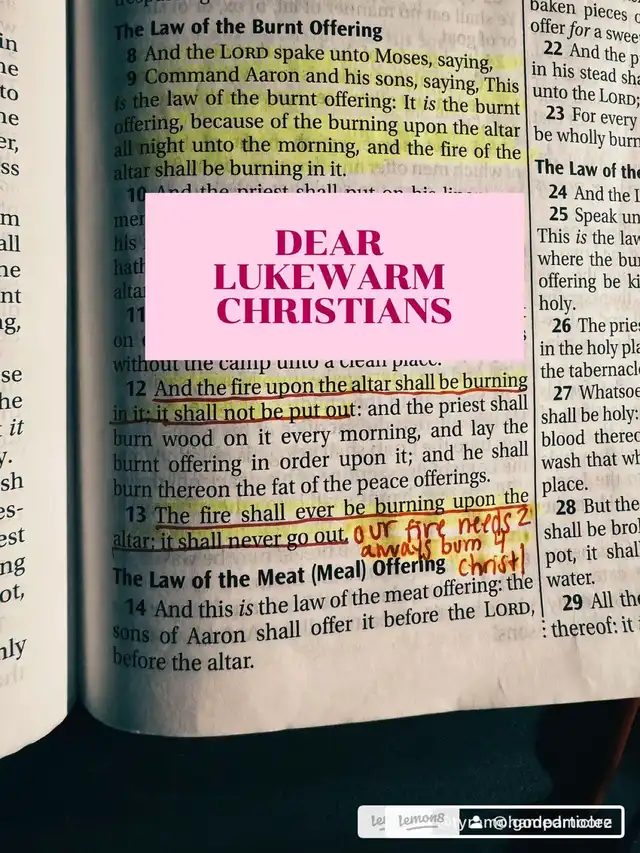 in
ne
to
ne
er,
ss
m
all
he
nt
ng,
se
he
it
y.
sh
es-
est
ng
ot,
nly
The Law of the Burnt Offering
8 And the LORD spake unto Moses, saying,
9 Command Aaron and his sons, saying, This
is the law of the burnt offering: It is the burnt
offering, because of the burning upon the altar
all night unto the morning, and the fire of the
altar shall be burning in it.
10 And the priest shall put on his
his
hath
altar
DEAR
LUKEWARM
CHRISTIANS
11
on
without the camp unto a clean place.
12 And the fire upon the altar shall be burning
in it; it shall not be put out: and the priest shall
burn wood on it every morning, and lay the
burnt offering in order upon it; and he shall
burn thereon the fat of the peace offerings.
13 The fire shall ever be burning upon the
altar; it shall never go out.
our fire needs 2
always burn 4
Christ!
The Law of the Meat (Meal) Offering
14 And this is the law of the meat offering: the
sons of Aaron shall offer it before the LORD,
before the altar.
baken pieces
offer for a swee
22 And the p
in his stead sha
unto the LORD;
23 For every
be wholly burn
The Law of the
24 And the L
25 Speak un
This is the law
where the bu
offering be ki
holy.
26 The pries
in the holy pla
the tabernacl
27 Whatsoe
shall be holy:
blood thereo
wash that wh
place.
28 But the
shall be bro
pot, it shal
water.
29 All the
thereof: it i
Lemon8